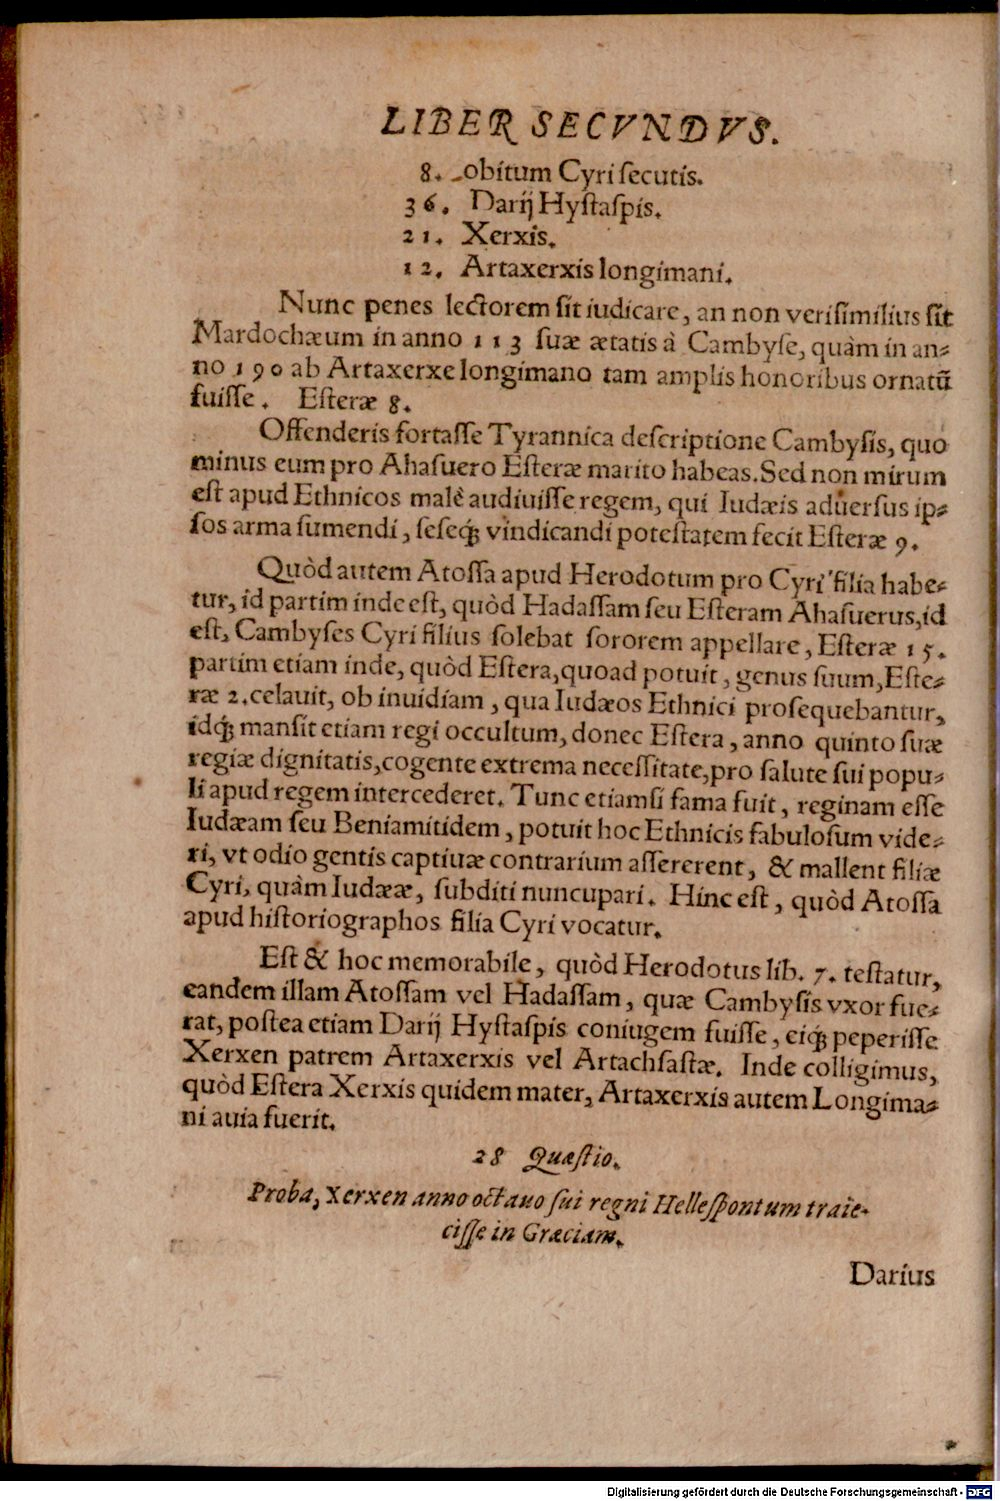 LIBER SECVNDVS.
8. obitum Cyri secutis.
36. Darij Hystaspis.
21. Xerxis.
12. Artaxerxis longimani.
Nunc penes lectorem sit iudicare, an non verisimilius sit
Mardochæum in anno 113 suæ ætatis à Cambyse, quàm in an⸗
no 190 ab Artaxerxe longimano tam amplis honoribus ornatū
fuisse. Esteræ 8.
Offenderis fortasse Tyrannica descriptione Cambysis, quo
minus eum pro Ahasuero Esteræ marito habeas. Sed non mirum
est apud Ethnicos malè audiuisse regem, qui Iudæis aduersus ip⸗
sos arma sumendi, seseq́; vindicandi potestatem fecit Esteræ 9.
Quòd autem Atossa apud Herodotum pro Cyri filia habe⸗
tur, id partim inde est, quòd Hadassam seu Esteram Ahasuerus, id
est, Cambyses Cyri filius solebat sororem appellare, Esteræ 15.
partim etiam inde, quòd Estera, quoad potuit, genus suum, Este⸗
ræ 2. celauit, ob inuidiam, qua Iudæos Ethnici prosequebantur,
idq́; mansit etiam regi occultum, donec Estera, anno quinto suæ
regiæ dignitatis, cogente extrema necessitate, pro salute sui popu⸗
li apud regem intercederet. Tunc etiamsi fama fuit, reginam esse
Iudæam seu Beniamitidem, potuit hoc Ethnicis fabulosum vide⸗
ri, vt odio gentis captiuæ contrarium assererent, & mallent filiæ
Cyri, quàm Iudææ, subditi nuncupari. Hinc est, quòd Atossa
apud historiographos filia Cyri vocatur.
Est & hoc memorabile, quòd Herodotus lib. 7. testatur,
eandem illam Atossam vel Hadassam, quæ Cambysis vxor fue⸗
rat, postea etiam Darij Hystaspis coniugem fuisse, eiq́; peperisse
Xerxen patrem Artaxerxis vel Artachsastæ. Inde colligimus,
quòd Estera Xerxis quidem mater, Artaxerxis autem Longima⸗
ni auia fuerit.
28 Quæstio.
Proba, Xerxen anno octauo sui regni Hellespontum traie-
cisse in Græciam.
Darius
Digitalisierung gefördert durch die Deutsche Forschungsgemeinschaft - DFG